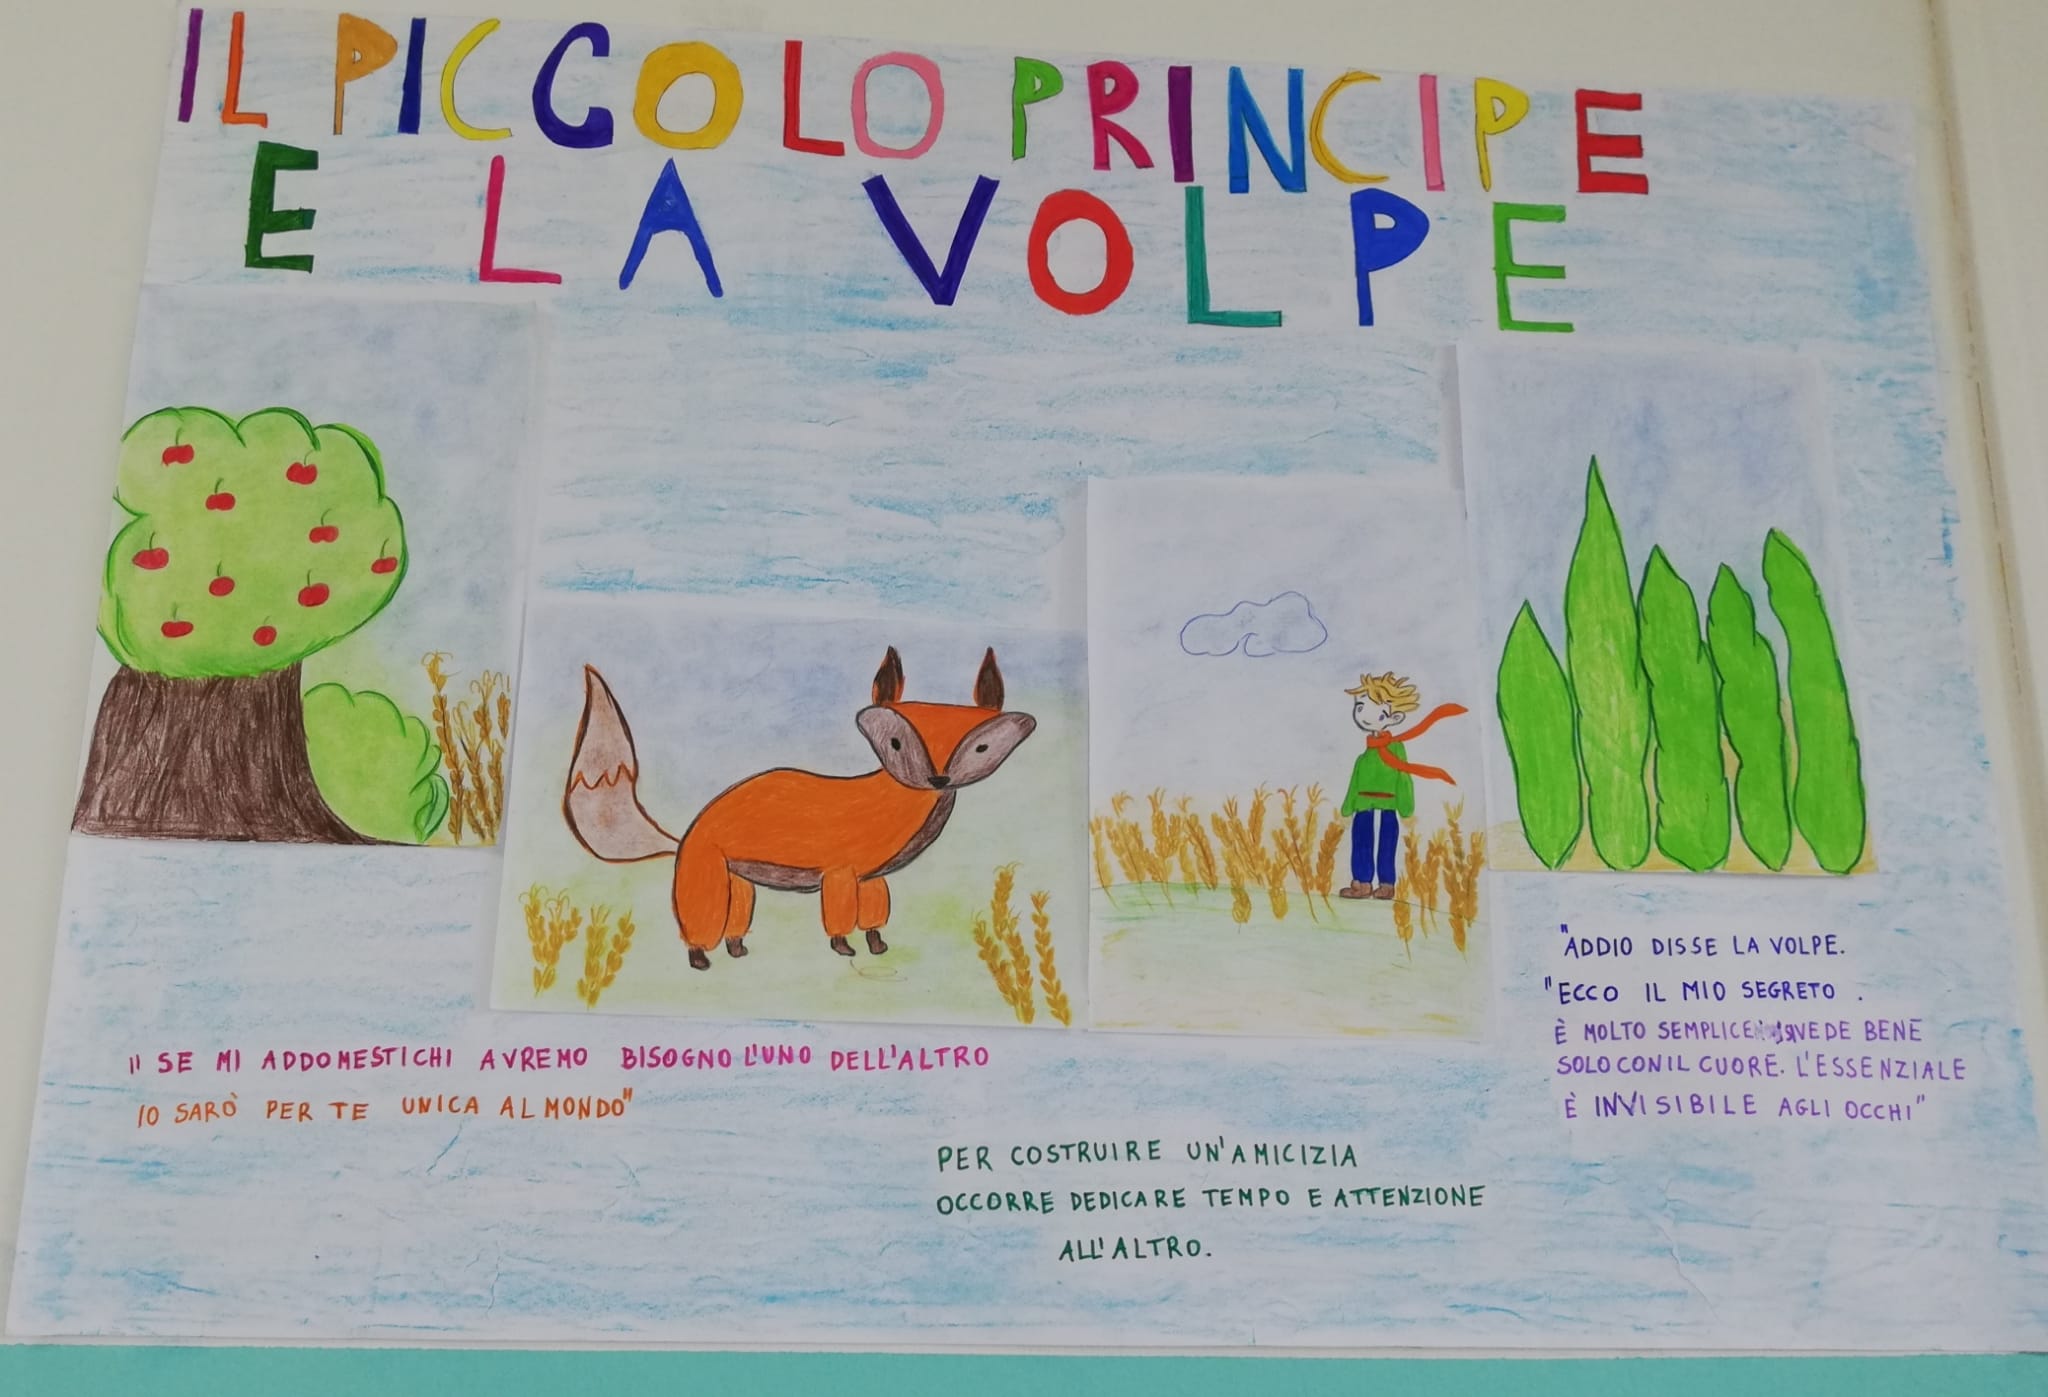 IL PICCOLO PRINCIPE
E LA VOLPE
"SE MI ADDOMESTICHI AVREMO BISOGNO L'UNO DELL'ALTRO
IO SARÒ PER TE UNICA AL MONDO"
PER COSTRUIRE UN'AMICIZIA
OCCORRE DEDICARE TEMPO E ATTENZIONE
ALL'ALTRO.
"ADDIO DISSE LA VOLPE.
"ECCO IL MIO SEGRETO.
È MOLTO SEMPLICE VEDE BENE
SOLO CON IL CUORE. L'ESSENZIALE
È INVISIBILE AGLI OCCHI"